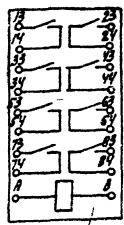 13 23
14 24
33 43
34 44
53 63
54 64
73 83
74 84
A B